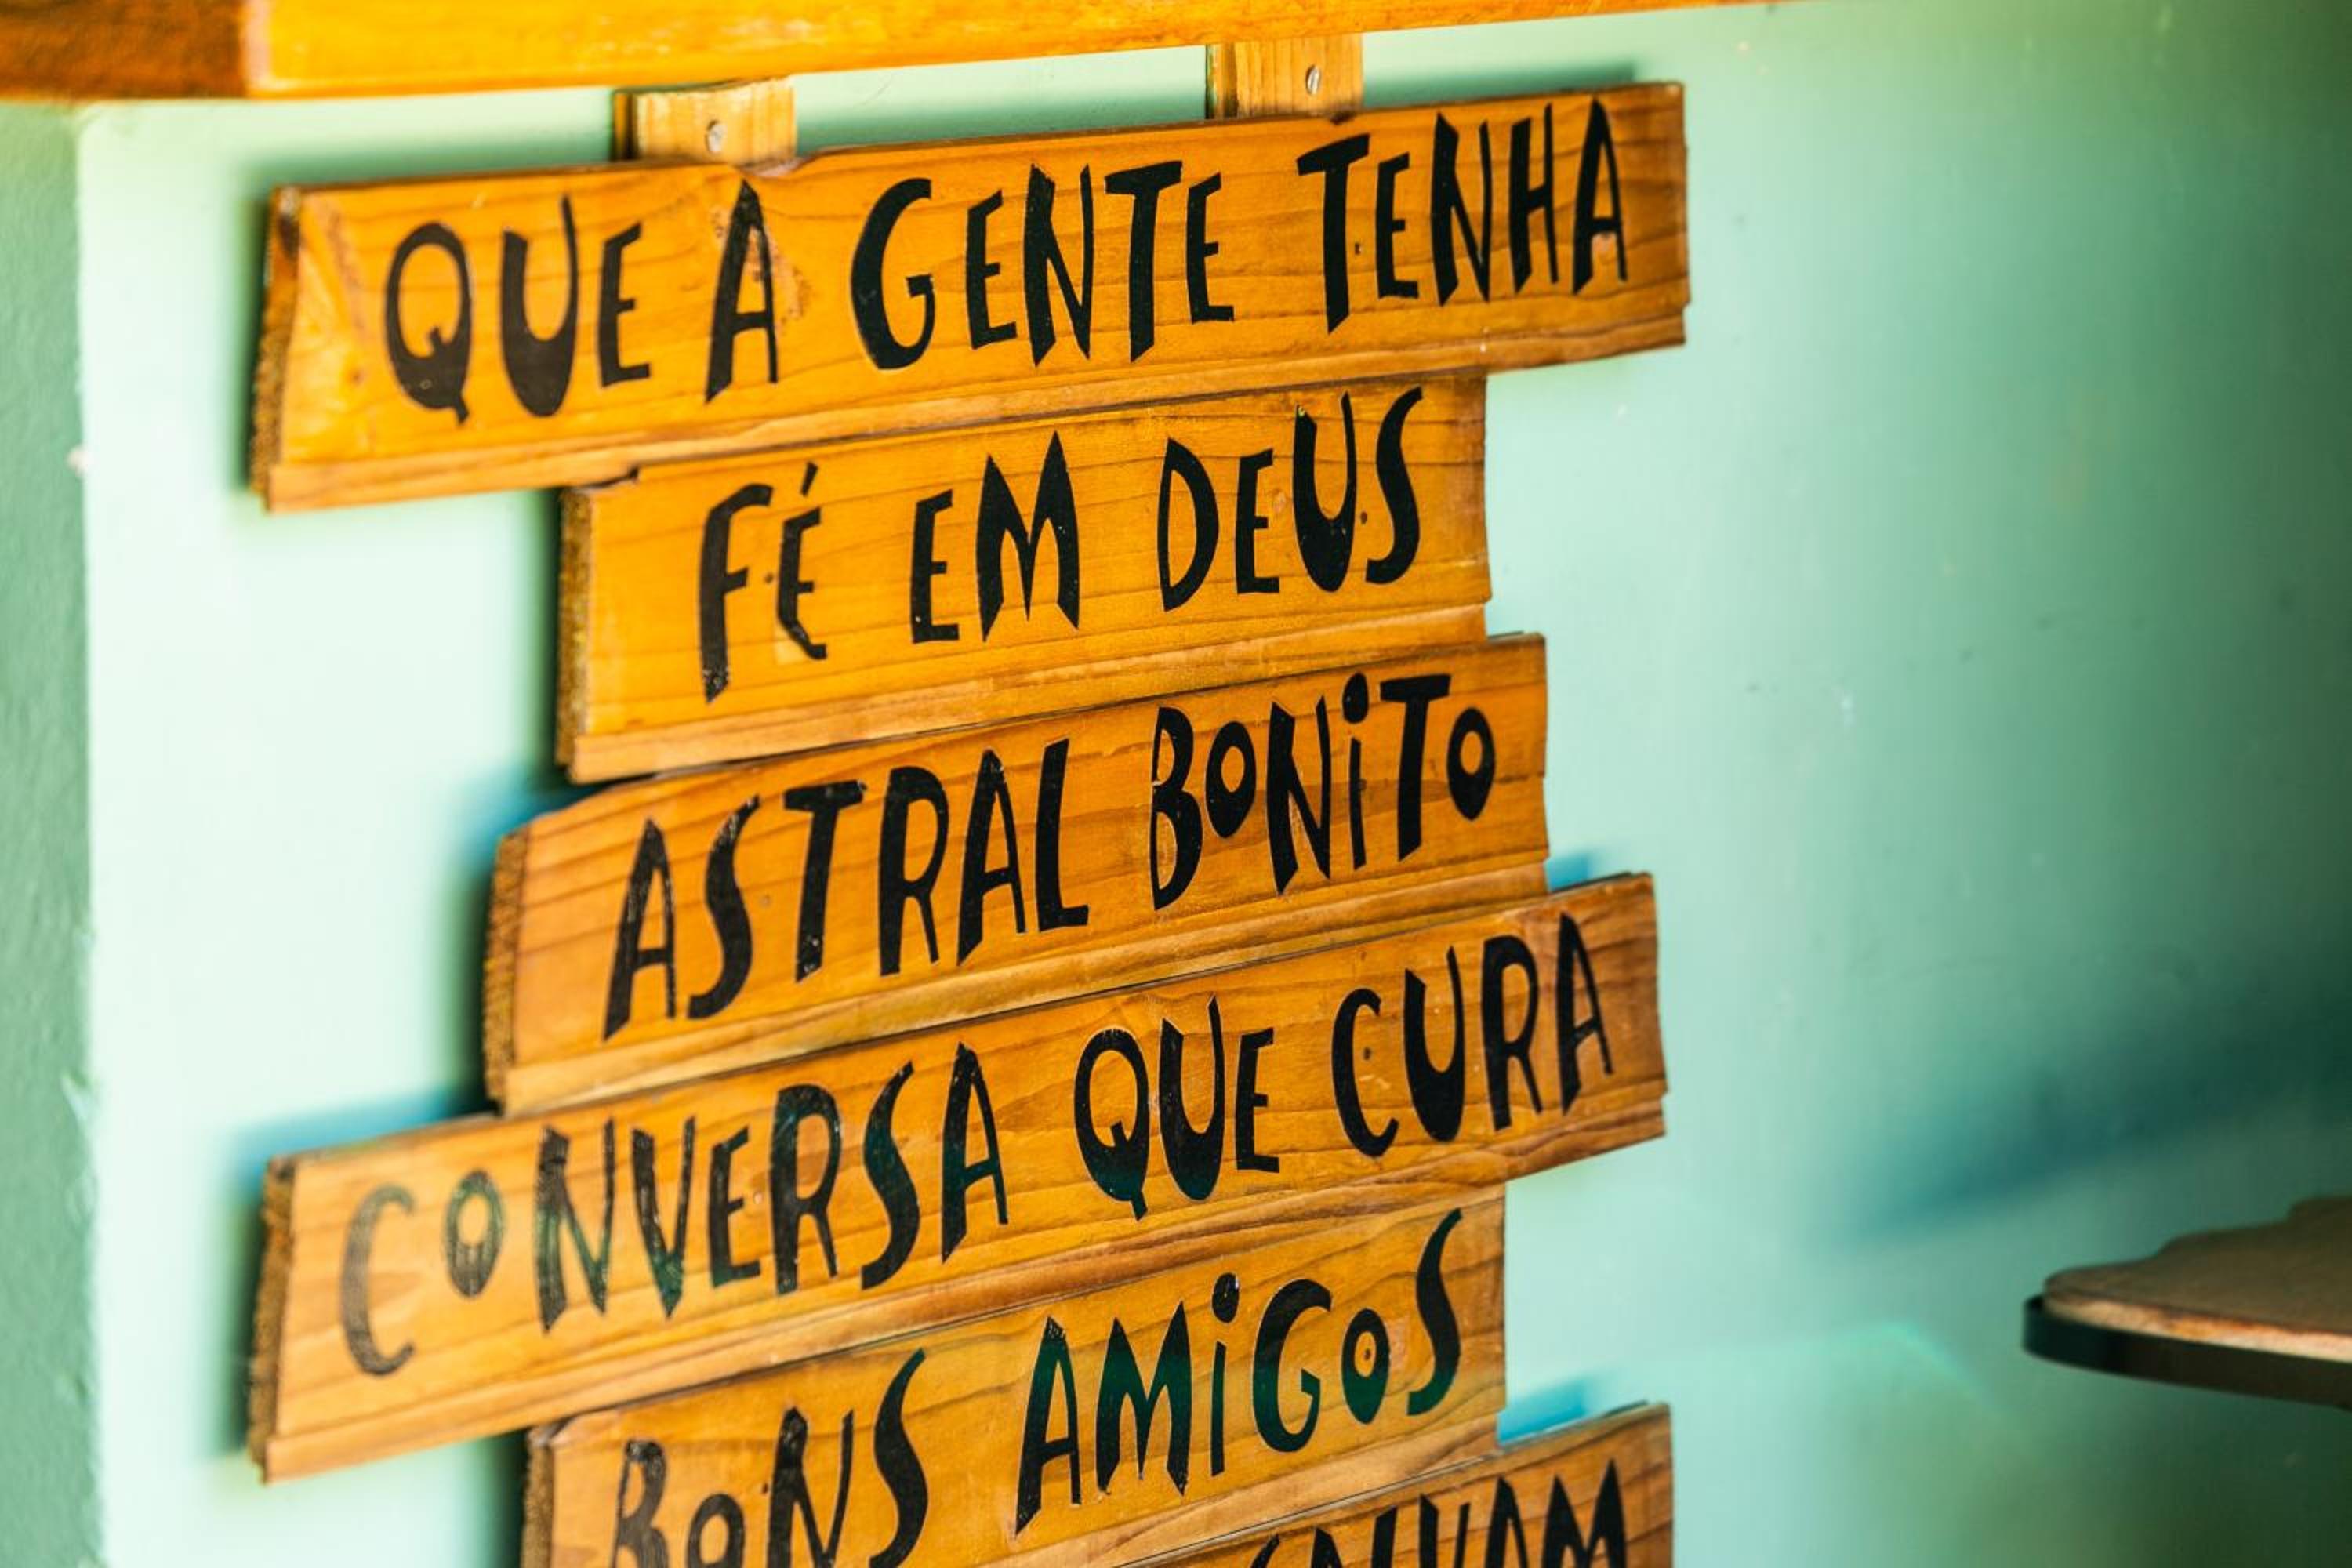 QUE A GENTE TENHA
FÉ EM DEUS
ASTRAL BONiTO
CONVERSA QUE CURA
BONS AMiGOS